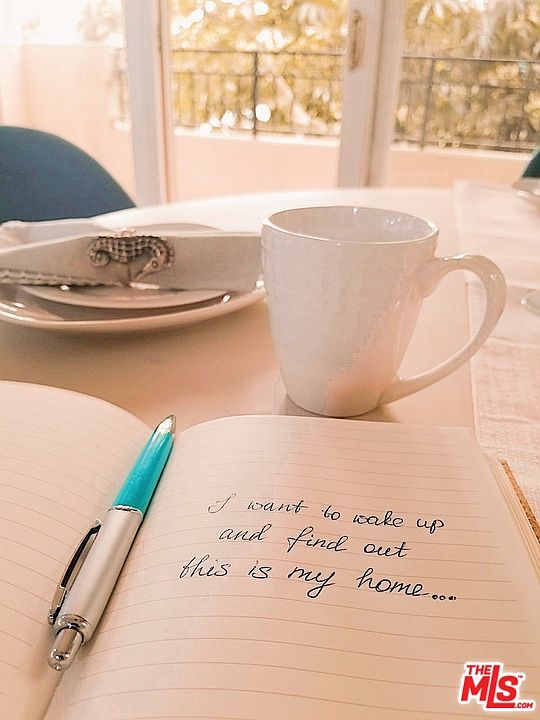 I want to wake up
and find out
this is my home...
THE
MLS™
.COM